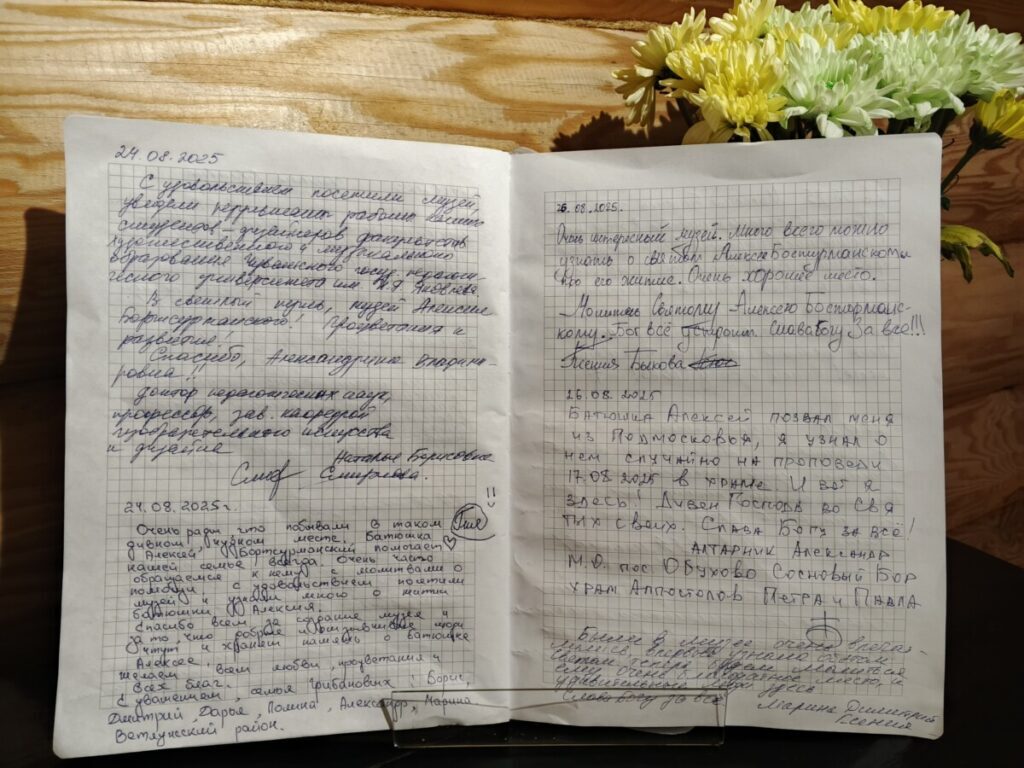 24.08.2025
С удовольствием посетили музей,
увидели первые работы наших
студентов-дизайнеров факультета
художественного и музыкального
образования Чувашского госуд. педагоги-
ческого университета им. И.Я Яковлева.
В светлый путь, музей Алексия
Бортсурманского! Процветания и
развития.
Спасибо, Александрина Владими-
ровна!!
доктор педагогических наук,
профессор, зав. кафедрой
изобразительного искусства
и дизайна
Наталья Борисовна
Смирнова.
24.08.2025г.
Очень рады, что побывали в таком
дивном, чудном месте. Батюшка
Алексей Бортсурманский помогает
нашей семье всегда. Очень часто
обращаемся к нему с молитвами о
помощи. С удовольствием посетили
музей и узнали много о житии
батюшки Алексия.
Спасибо всем за создание музея и
за то, что добрые и отзывчивые люди
чтут и хранят память о батюшке
Алексее.
Желаем всем любви, процветания и
всех благ.
С уважением, семья Грибановых: Борис,
Дмитрий, Дарья, Полина, Александр, Марина
Ветлужский район.
26.08.2025.
Очень интересный музей. Много всего можно
узнать о святом Алексее Бостурманском
и о его житие. Очень хорошее место.
Молитесь Святому Алексею Бостарманс-
кому. Бог всё устроит. Слава Богу За все!!!
Ксения Быкова
26.08.2025
Батюшка Алексей позвал меня
из Подмосковья, я узнал о
нем случайно на проповеди
17.08.2025 в храме. И вот я
здесь! Дивен Господь во Свя
тых своих. Слава Богу за всё!
Алтарник Александр
М.О. пос. Обухово Сосновый Бор
храм Аппостолов Петра и Павла
Были в музее, очень впечат-
лились, впервые узнали о таком
святом, теперь будем молиться
ему. Очень благодатное место, и
удивительные здесь
Слава Богу за всё
Марина Димитрий
Ксения